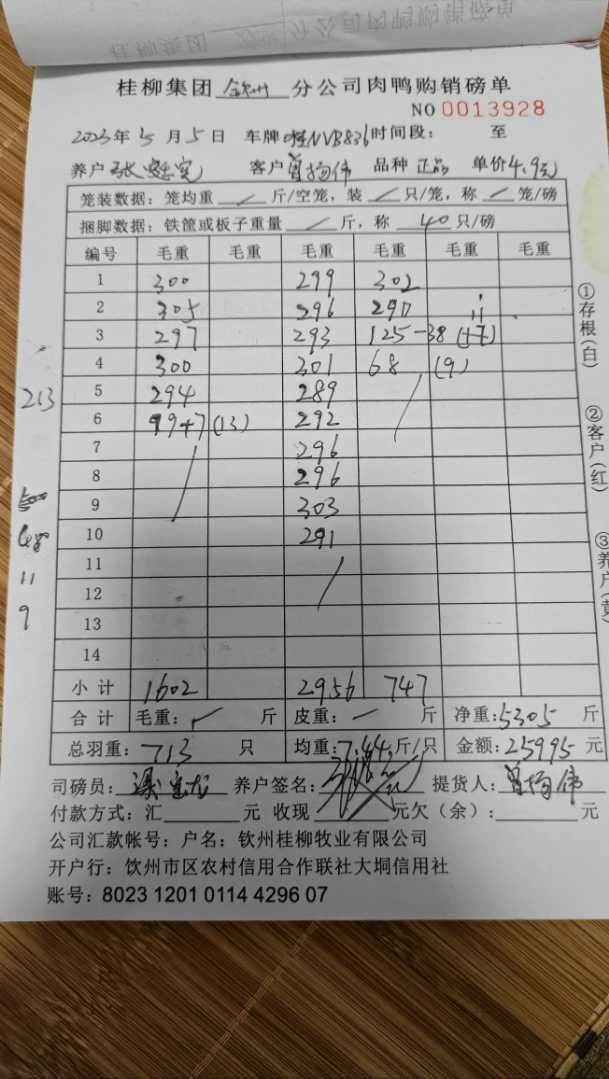 桂柳集团 钦州 分公司肉鸭购销磅单
NO 0013928
2023年5月5日 车牌 NVB836 时间段： 至
养户 张 客户 曾杨伟 品种 正品 单价4.9元
笼装数据：笼均重 / 斤/空笼，装 / 只/笼，称 / 笼/磅
捆脚数据：铁筐或板子重量 / 斤，称 40 只/磅
编号 毛重 毛重 毛重 毛重 毛重 毛重
1 300 299 302
2 305 296 290
3 297 293 125-38 (17)
4 300 301 68 (9)
5 294 289
6 99+7(13) 292
7 296
8 296
9 303
10 291
11
12
13
14
小计 1602 2956 747
合计 毛重： 斤 皮重： 斤 净重:5305 斤
总羽重：713 只 均重:7.44斤/只 金额：25995元
司磅员： 养户签名： 提货人：曾杨伟
付款方式：汇 元 收现 元欠（余）： 元
公司汇款帐号：户名：钦州桂柳牧业有限公司
开户行：饮州市区农村信用合作联社大垌信用社
账号：8023 1201 0114 4296 07
①存根(白)
②客户(红)
③养户(黄)
213
68
11
9